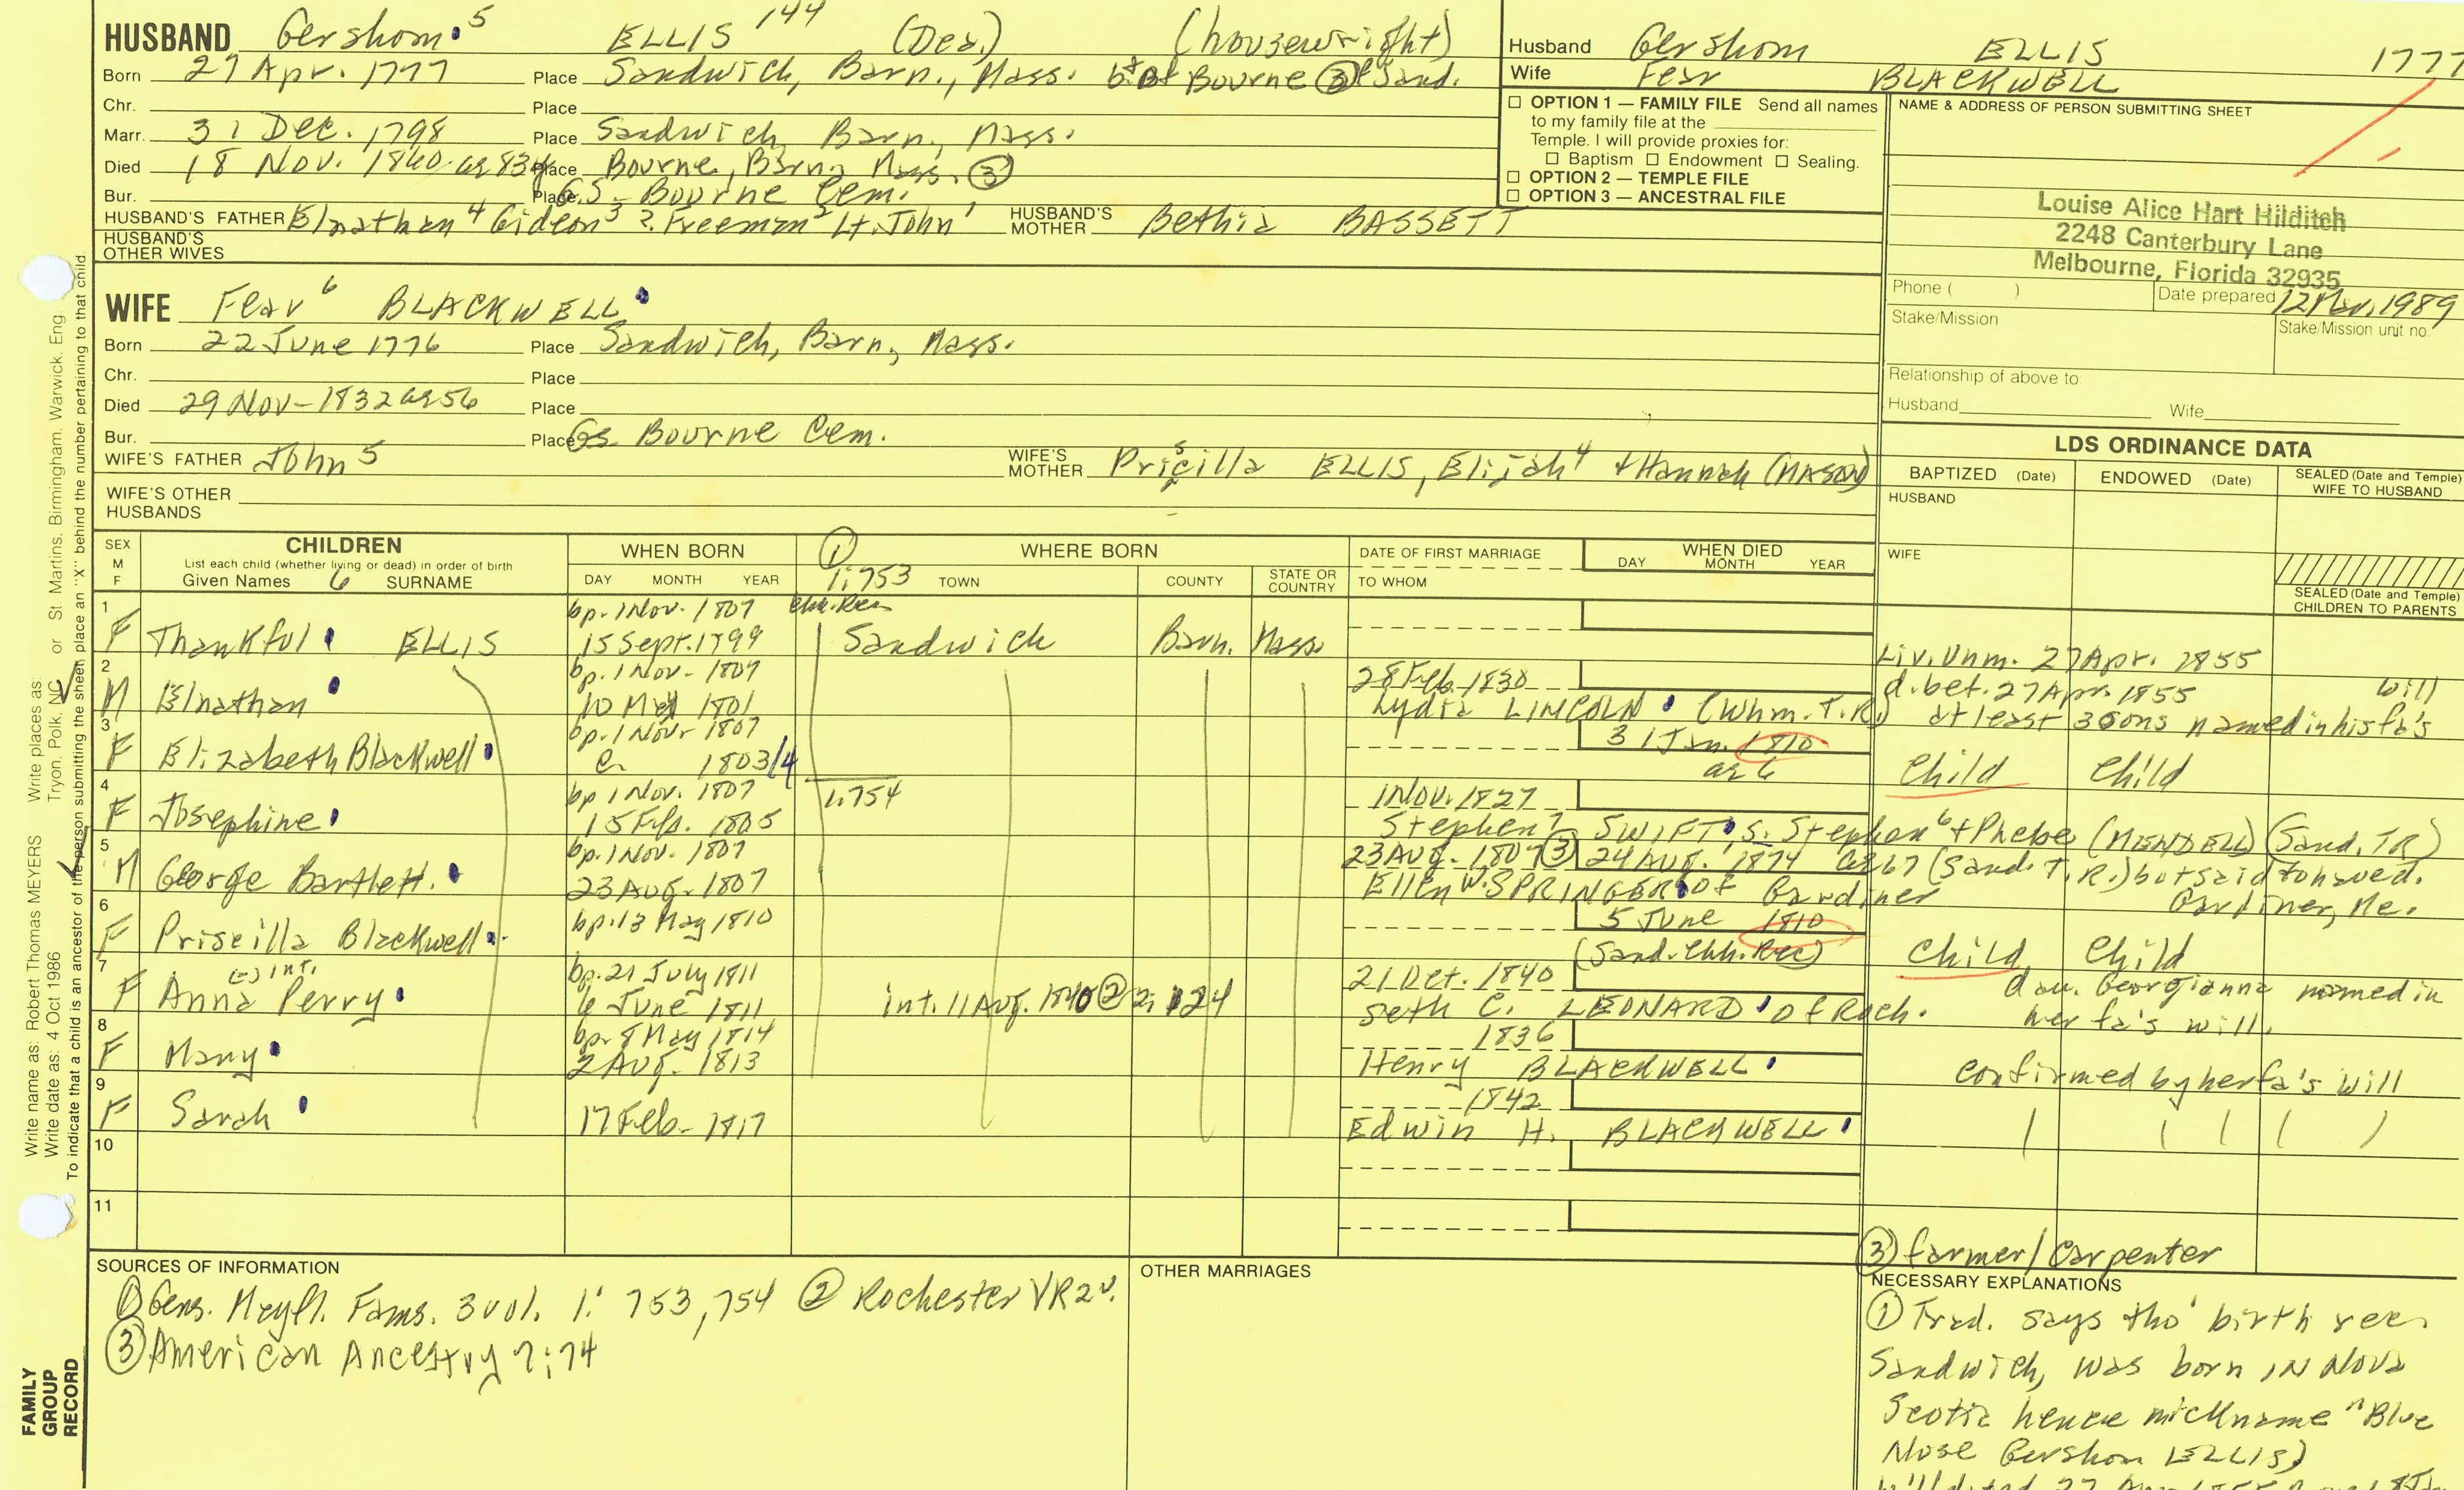 HUSBAND Gershom 5 ELLIS 144 (Dea.) (housewright)
Born 27 Apr. 1777 Place Sandwich, Barn., Mass. Bourne ③ Sand.
Chr. Place
Marr. 31 Dec. 1798 Place Sandwich, Barn., Mass.
Died 18 Nov. 1860 ae 83 Place Bourne, Barn., Mass. ③
Bur. Place GS Bourne Cem.
HUSBAND'S FATHER Elnathan 4 Gideon 3 ? Freeman 2 Lt. John 1 HUSBAND'S MOTHER Bethia BASSETT
HUSBAND'S OTHER WIVES
Husband Gershom ELLIS 1777
Wife Fear BLACKWELL
☐ OPTION 1 — FAMILY FILE Send all names
to my family file at the
Temple. I will provide proxies for:
☐ Baptism ☐ Endowment ☐ Sealing.
☐ OPTION 2 — TEMPLE FILE
☐ OPTION 3 — ANCESTRAL FILE
NAME & ADDRESS OF PERSON SUBMITTING SHEET
Louise Alice Hart Hilditch
2248 Canterbury Lane
Melbourne, Florida 32935
Phone ( ) Date prepared 12 1989
Stake/Mission Stake/Mission unit no.
Relationship of above to:
Husband Wife
WIFE Fear 6 BLACKWELL
Born 22 June 1776 Place Sandwich, Barn., Mass.
Chr. Place
Died 29 Nov- 1832 ae 56 Place
Bur. Place GS Bourne Cem.
WIFE'S FATHER John 5 WIFE'S MOTHER Priscilla 5 ELLIS, Elijah 4 + Hannah (MASON)
WIFE'S OTHER HUSBANDS
LDS ORDINANCE DATA
BAPTIZED (Date) ENDOWED (Date) SEALED (Date and Temple) WIFE TO HUSBAND
HUSBAND
WIFE
SEALED (Date and Temple) CHILDREN TO PARENTS
SEX M F
CHILDREN
List each child (whether living or dead) in order of birth
Given Names 6 SURNAME
WHEN BORN
DAY MONTH YEAR
① 1:753
WHERE BORN
TOWN COUNTY STATE OR COUNTRY
DATE OF FIRST MARRIAGE
TO WHOM
WHEN DIED
DAY MONTH YEAR
bp. 1 Nov. 1807 Chh. Rec
1 F Thankful ELLIS 15 Sept. 1799 Sandwich Barn. Mass.
Liv. Unm. 27 Apr. 1855
bp. 1 Nov- 1807 28 Feb. 1830 d. bet. 27 Apr. 1855 will
2 M Elnathan 10 May 1801 Lydia LINCOLN (Whm. T.R.) at least 3 sons named in his fa's
bp. 1 Nov- 1807 31 Jan. 1810
3 F Elizabeth Blackwell c 1803/4 ae 6 Child Child
bp 1 Nov. 1807 1:754 1 Nov. 1827
4 F Josephine 15 Feb. 1805 Stephen 7 SWIFT S. Stephen 6 + Phebe (MENDELL) (Sand. TR)
bp. 1 Nov. 1807 23 Aug. 1807 ③ 24 Aug. 1874 ae 67 (Sand. T.R.) but said to have d.
5 M George Bartlett. 23 Aug. 1807 Ellen W. SPRINGER of Gardiner Gardiner, Me.
bp. 13 May 1810 5 June 1810
6 F Priscilla Blackwell (Sand. Chh. Rec) Child Child
int. bp. 21 July 1811 21 Oct. 1840 dau. Georgianna named in
7 F Anna Perry 6 June 1811 int. 11 Aug. 1840 ② 2:124 Seth C. LEONARD of Roch. her fa's will.
bp. 8 May 1814 1836
8 F Mary 2 Aug. 1813 Henry BLACKWELL Confirmed by her fa's will
1842
9 F Sarah 17 Feb- 1817 Edwin H. BLACKWELL
10
11
③ farmer/carpenter
SOURCES OF INFORMATION
① Gens. Mayfl. Fams. 3 vol. 1: 753, 754 ② Rochester VR 2 v.
③ American Ancestry 7:74
OTHER MARRIAGES
NECESSARY EXPLANATIONS
① Trad. says tho' birth rec.
Sandwich, was born IN Nova
Scotia hence nickname "Blue
Nose Gershom ELLIS)
Write name as: Robert Thomas MEYERS Write places as:
Write date as: 4 Oct 1986 Tryon, Polk, NC or St. Martins, Birmingham, Warwick, Eng.
To indicate that a child is an ancestor of the person submitting the sheet, place an "X" behind the number pertaining to that child.
FAMILY
GROUP
RECORD